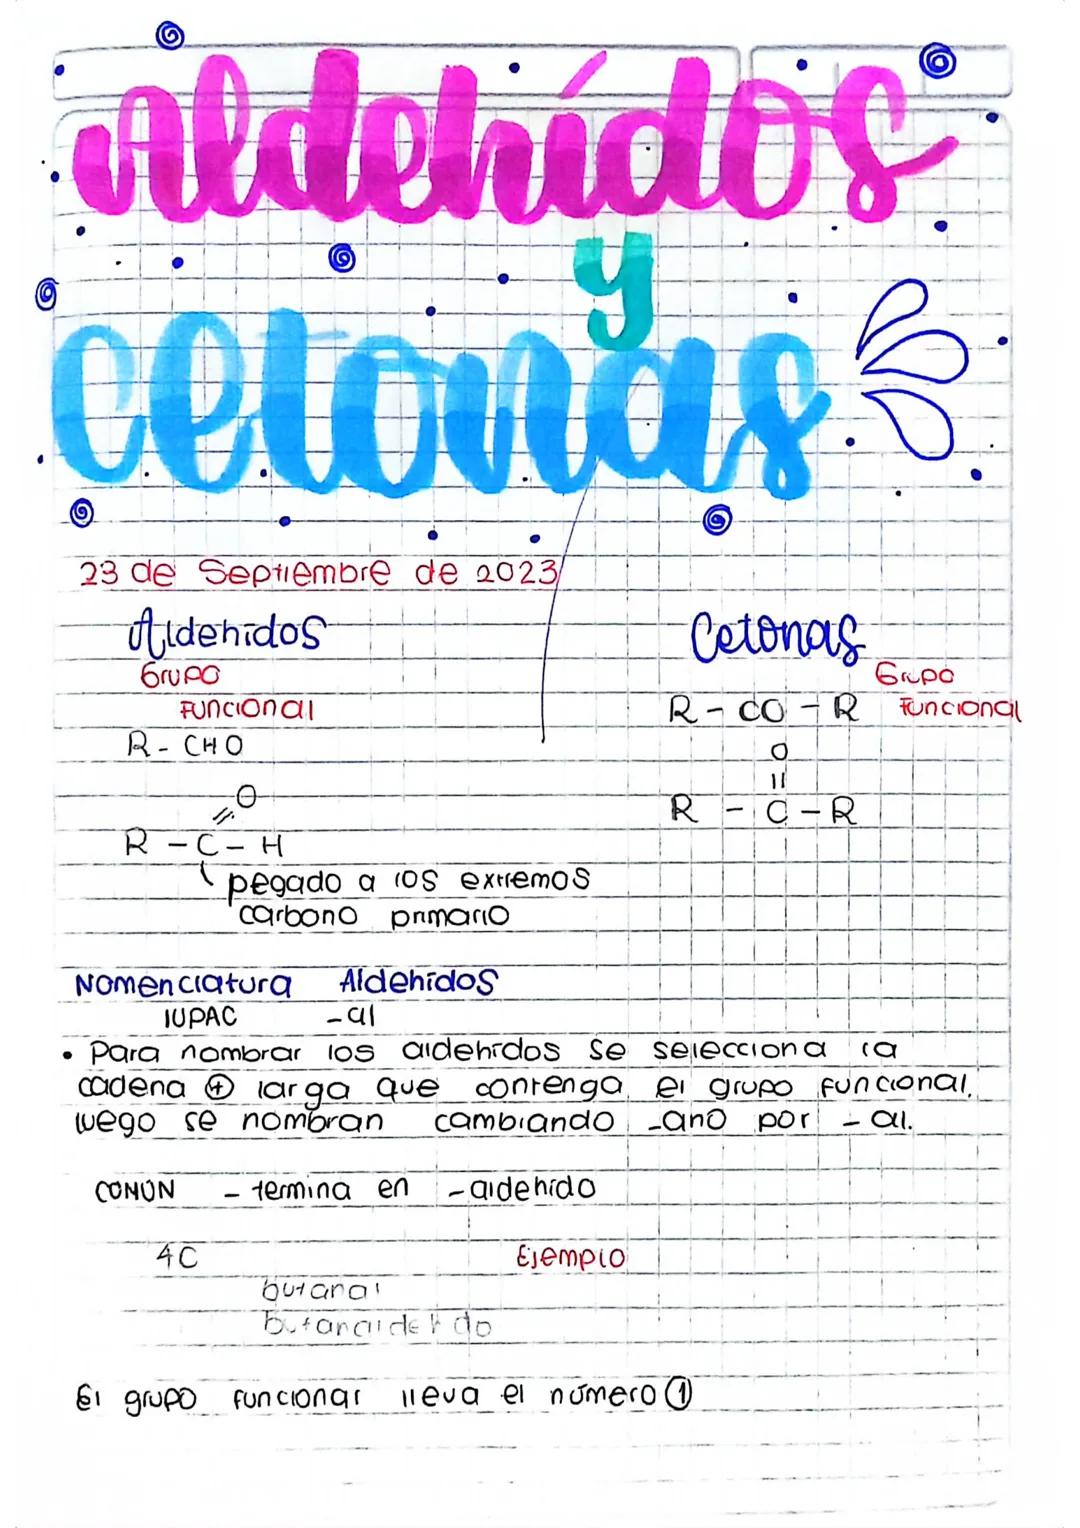 Aldehídos
y
Cetonas
23 de Septiembre de 2023
Aldehidos
Grupo
Funcional
R - CHO
O
R - C - H
pegado a los extremos
carbono primario
Cetonas
Grupo
Funcional
R - CO - R
O
R - C - R
Nomenclatura Aldehídos
IUPAC -al
• Para nombrar los aldehídos se selecciona la
cadena ⊕ larga que contenga el grupo funcional,
luego se nombran cambiando -ano por -al.
COMÚN - termina en -aldehído
4C Ejemplo
butanal
butanaldehido
El grupo funcional lleva el número ①